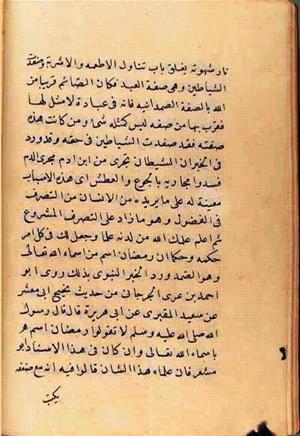 نار شهوته بغلق باب تناول الاطعمه والاشربة وصفد
الشياطين وهى صفة البعد فكان الصائم قريبا من
الله بالصفة الصمدانيه فانه فى عبادة لا مثل لها
فقرب بها من صفه ليس كمثله شئ ومن كانت هذه
صفته فقد صفدت الشياطين فى حقه وقد ورد
فى الخبر ان الشيطان يجرى من ابن ادم مجرى الدم
فسدوا مجاريه بالجوع والعطش اى هذه الاسباب
معينة له على ما يريده من الانسان من التصرف
فى الفضول وهو ما زاد على التصرف المشروع
ثم اعلم علمك الله من لدنه علما وجعل لك فى كل امر
حكمه وحكما ان رمضان اسم من اسماء الله تعالى
وهو الصمد ورد الخبر النبوى بذلك روى ابو
احمد بن عدى الجرجانى من حديث نجيح ابى معشر
عن سعيد المقبرى عن ابى هريرة قال قال رسول
الله صلى الله عليه وسلم لا تقولوا رمضان فان رمضان اسم
باسماء الله تعالى وان كان فى هذا الاسناد ابو
معشر فان علماء هذا الشان قالوا فيه انه مع ضعفه
يكتب